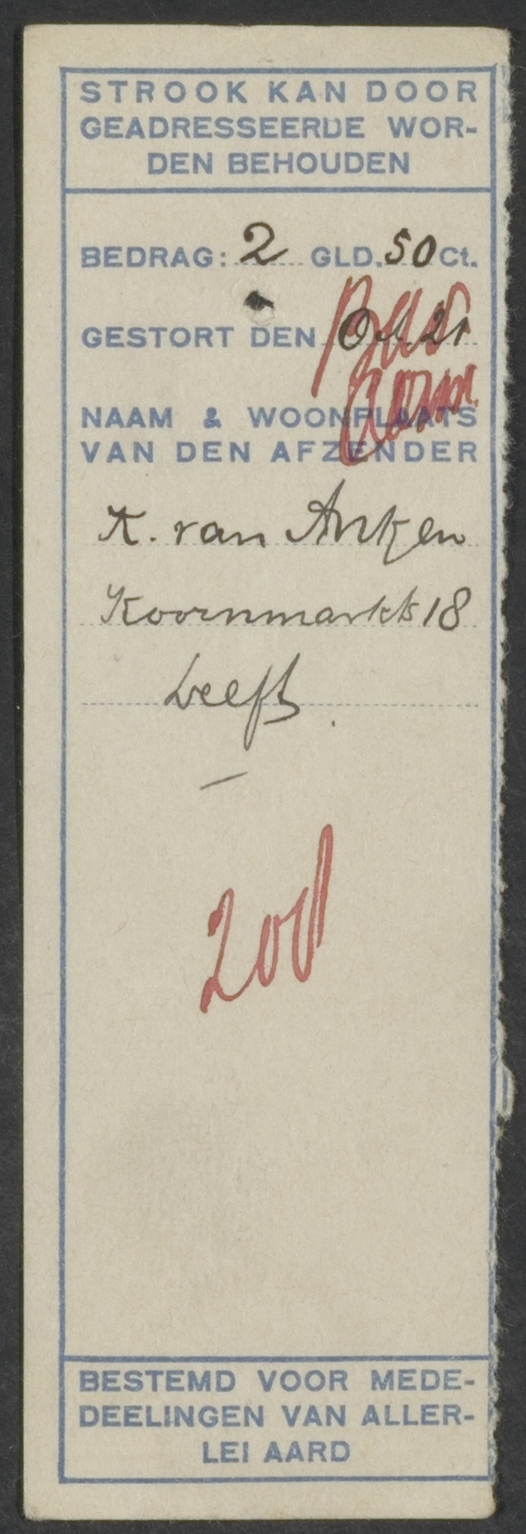 STROOK KAN DOOR
GEADRESSEERDE WOR-
DEN BEHOUDEN
BEDRAG: 2 GLD. 50 Ct.
GESTORT DEN Oct 21
NAAM & WOONPLAATS
VAN DEN AFZENDER
K. van
Koornmarkt 18
Delft
BESTEMD VOOR MEDE-
DEELINGEN VAN ALLER-
LEI AARD